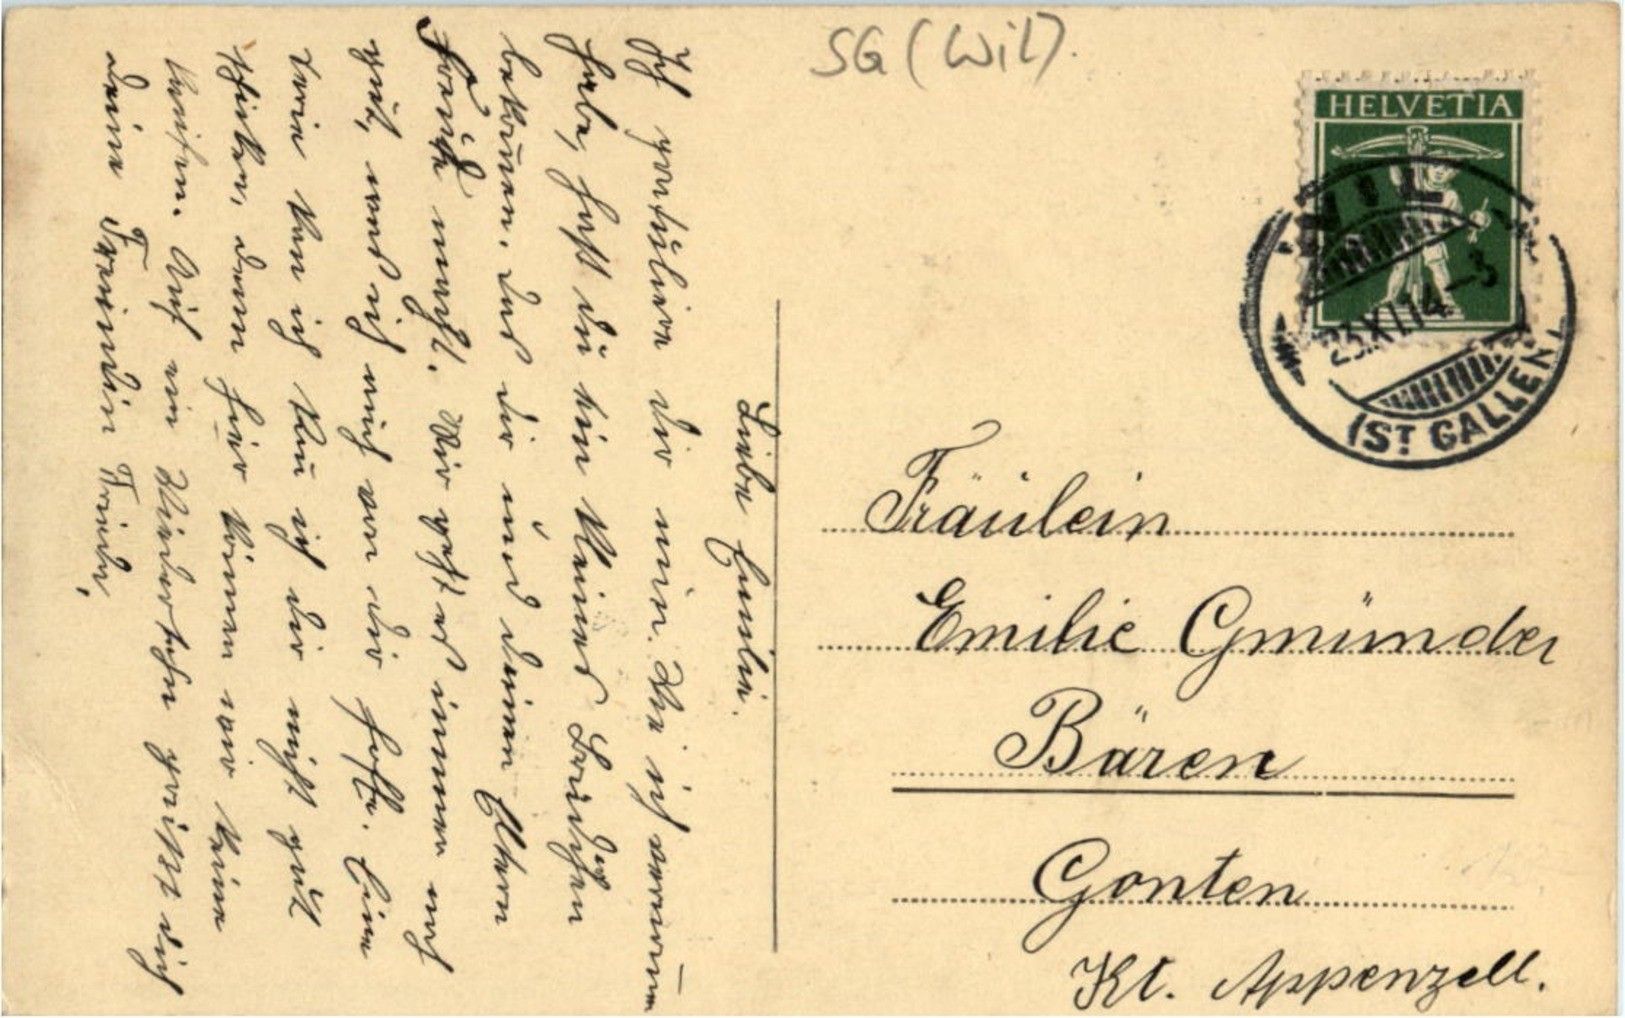 SG (Wil).
HELVETIA
WIL
23.XI.14.-3
(ST GALLEN)
Liebe Emilie.
Ich gratuliere dir nur. Wie ich vernomen
habe, hast du ein kleines Brüderchen
bekomen, das dir und deinen Eltern
Freude macht. Mir geht es immer noch
gut, was ich auch von dir hoffe. Eine
kan ich dir nicht gut
schicken, denn hier könen wir keine
kaufen. Auf ein Wiedersehn grüsst dich
deine Freundin
Fräulein
Emilie Gmünder
Bären
Gonten
Kt. Appenzell.